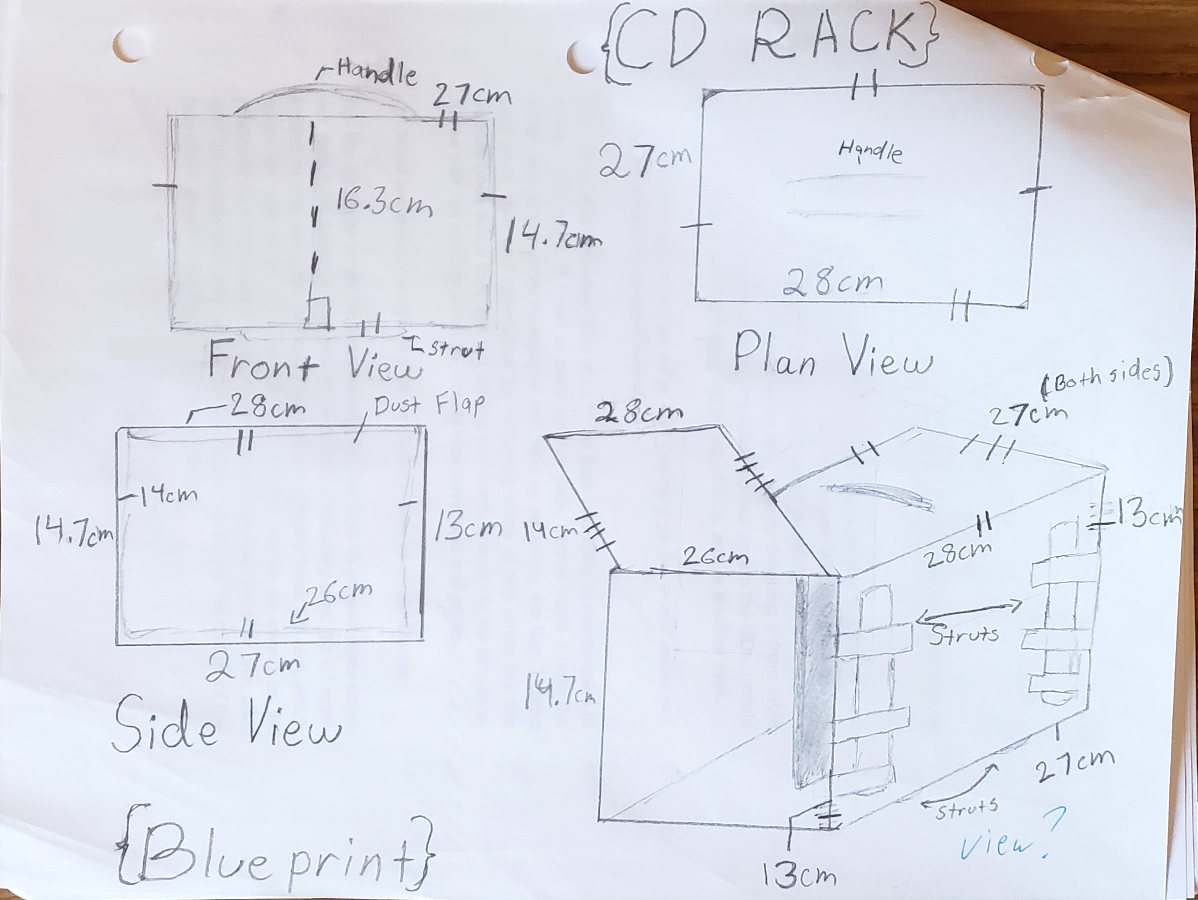 {CD RACK}
Handle
27cm
16.3cm
14.7cm
strut
Front View
27cm
Handle
28cm
Plan View
28cm
Dust Flap
14cm
14.7cm
13cm
26cm
27cm
Side View
(Both sides)
27cm
28cm
14cm
26cm
28cm
13cm
Struts
14.7cm
27cm
Struts
View?
13cm
{Blueprint}